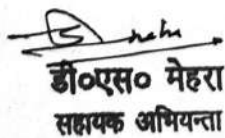 डी०एस० मेहरा
सहायक अभियन्ता